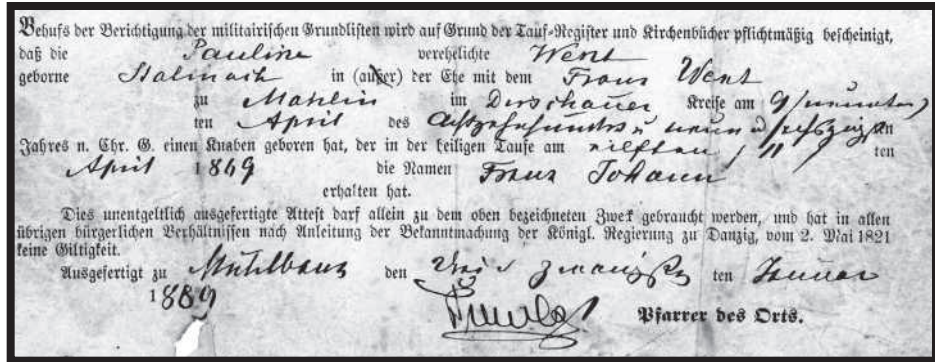 Behufs der Berichtigung der militairischen Grundlisten wird auf Grund der Tauf-Register und Kirchenbücher pflichtmäßig bescheinigt,
daß die Pauline verehelichte Went
geborne Stalinach in (außer) der Ehe mit dem Franz Went
zu Mahlin im Dirschauer Kreise am 9 (neunten)
ten April des Achtzehnhundert u neun u sechszigsten
Jahres n. Chr. G. einen Knaben geboren hat, der in der heiligen Taufe am eilften (11) ten
April 1869 die Namen Franz Johann
erhalten hat.
Dies unentgeltlich ausgefertigte Attest darf allein zu dem oben bezeichneten Zweck gebraucht werden, und hat in allen
übrigen bürgerlichen Verhältnissen nach Anleitung der Bekanntmachung der Königl. Regierung zu Danzig, vom 2. Mai 1821
keine Giltigkeit.
Ausgefertigt zu Mühlbanz den zwanzigsten Januar
1889
Pfarrer des Orts.